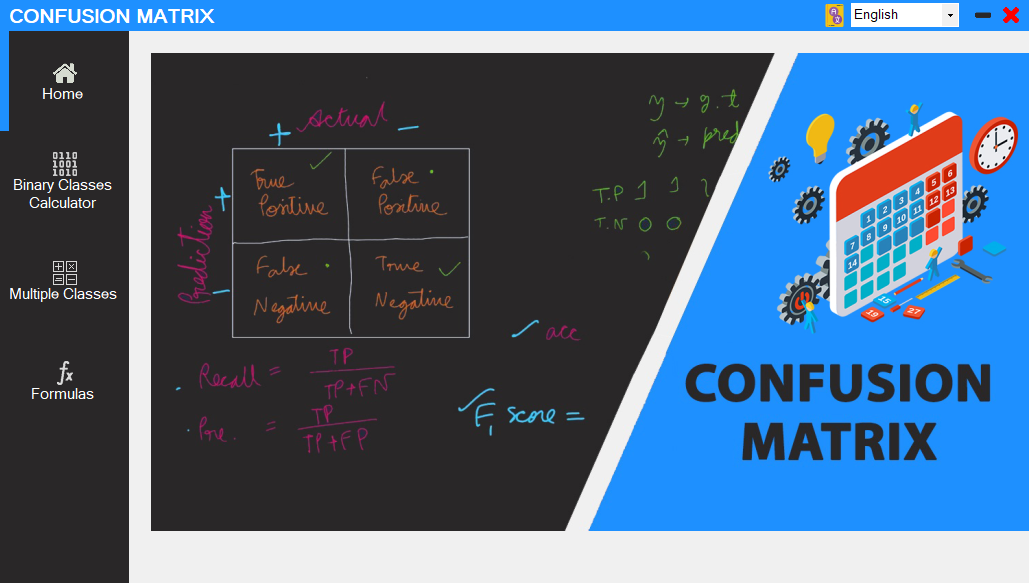 CONFUSION MATRIX
English
Home
0110
1001
1010
Binary Classes
Calculator
Multiple Classes
fx
Formulas
+ Actual −
Prediction
+
−
True
Positive
False
Positive
False
Negative
True
Negative
y → g.t
ŷ → pred
T.P 1 1
T.N 0 0
Recall = TP
TP+FN
Pre. = TP
TP+FP
acc
F1 score =
1 2 3 4 5 6
7 8 9 10 11 12 13
14
15
19
27
CONFUSION
MATRIX